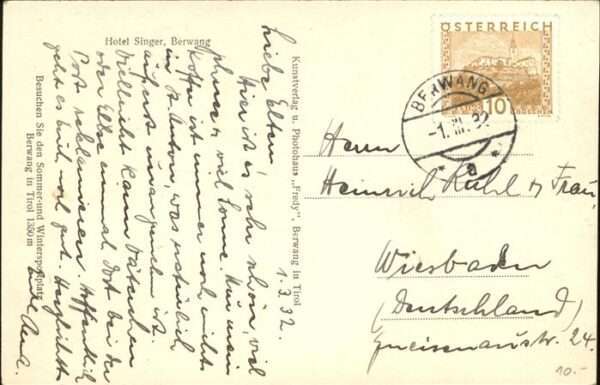 Hotel Singer, Berwang
Besuchen Sie den Sommer- und Wintersportplatz
Berwang in Tirol 1350 m
1.3.32.
Liebe Eltern!
Hier ist es sehr schön, viel
Schnee u. viel Sonne. Nur mein
Koffer ist immer noch nicht
in St. Anton, was natürlich
äußerst unangenehm ist.
Vielleicht kann Väterchen
oder Else einmal dort bei der
Post reklamieren. Hoffentlich
geht es Euch gut. Herzlichst
Eure
Kunstverlag u. Photohaus „Fredy", Berwang in Tirol
ÖSTERREICH
10
BERWANG
-1.III.32
Herrn
Heinrich Ruhl u. Frau,
Wiesbaden
(Deutschland)
Gneisenaustr. 24.
10.-